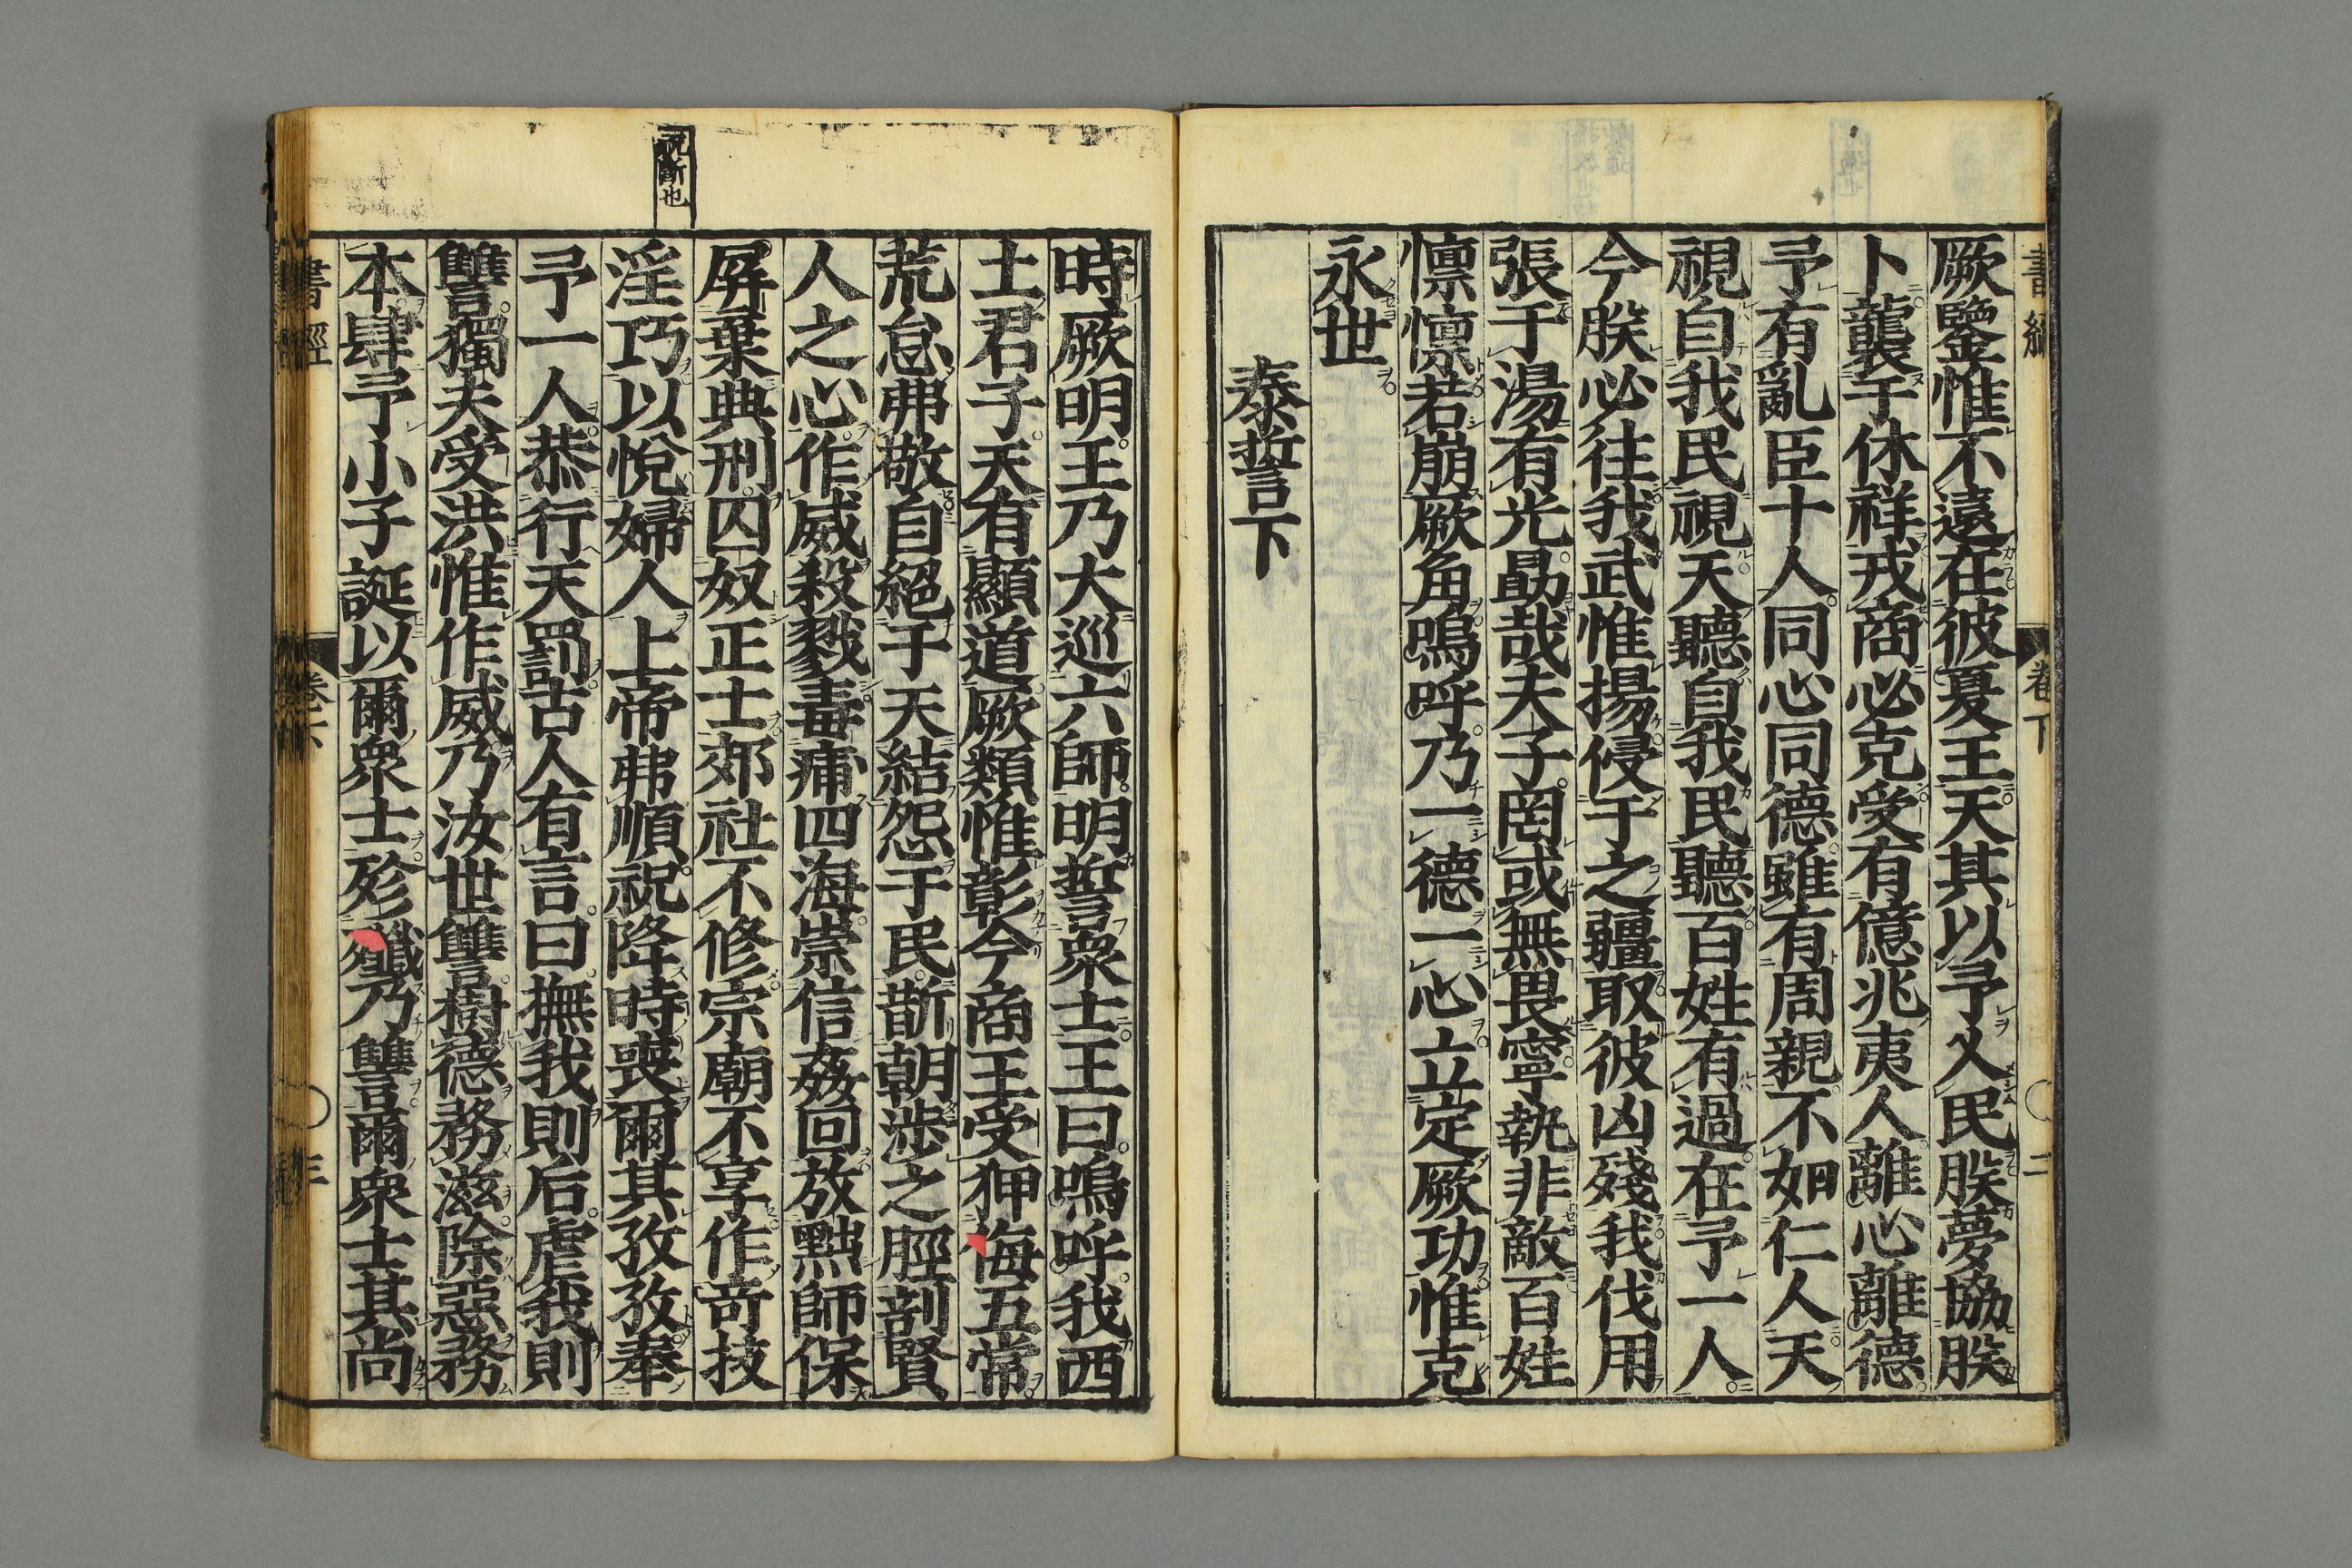 書經
卷下
二
厥鑒惟不遠在彼夏王天其以予乂民朕夢協朕
卜襲于休祥戎商必克受有億兆夷人離心離德
予有亂臣十人同心同德雖有周親不如仁人天
視自我民視天聽自我民聽百姓有過在予一人
今朕必往我武惟揚侵于之疆取彼凶殘我伐用
張于湯有光勗哉夫子罔或無畏寧執非敵百姓
懍懍若崩厥角嗚呼乃一德一心立定厥功惟克
永世
泰誓下
時厥明王乃大巡六師明誓衆士王曰嗚呼我西
土君子天有顯道厥類惟彰今商王受狎侮五常
荒怠弗敬自絕于天結怨于民斮朝涉之脛剖賢
人之心作威殺戮毒痡四海崇信姦回放黜師保
屏棄典刑囚奴正士郊社不修宗廟不享作奇技
祝斷也
淫巧以悅婦人上帝弗順祝降時喪爾其孜孜奉
予一人恭行天罰古人有言曰撫我則后虐我則
讐獨夫受洪惟作威乃汝世讐樹德務滋除惡務
本肆予小子誕以爾衆士殄殲乃讐爾衆士其尚
書經
卷下
三